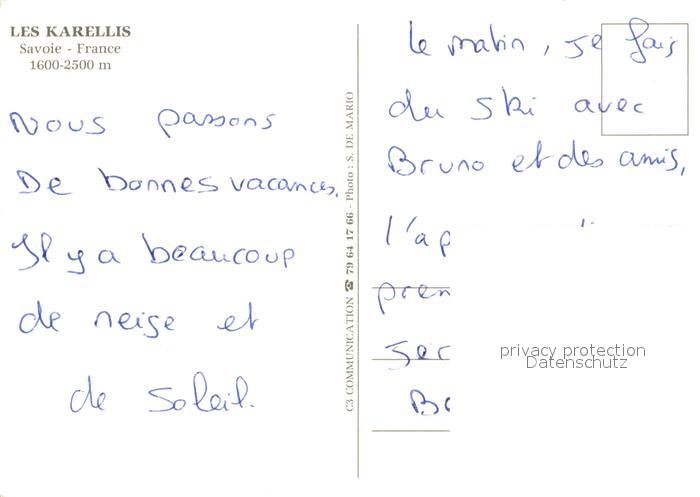 LES KARELLIS
Savoie - France
1600-2500 m
Nous passons
De bonnes vacances.
Il y a beaucoup
de neige et
de soleil.
C3 COMMUNICATION ☎ 79 64 17 66 - Photo : S. DE MARIO
le matin, je fais
du ski avec
Bruno et des amis,
l'ap
pren
privacy protection
Datenschutz